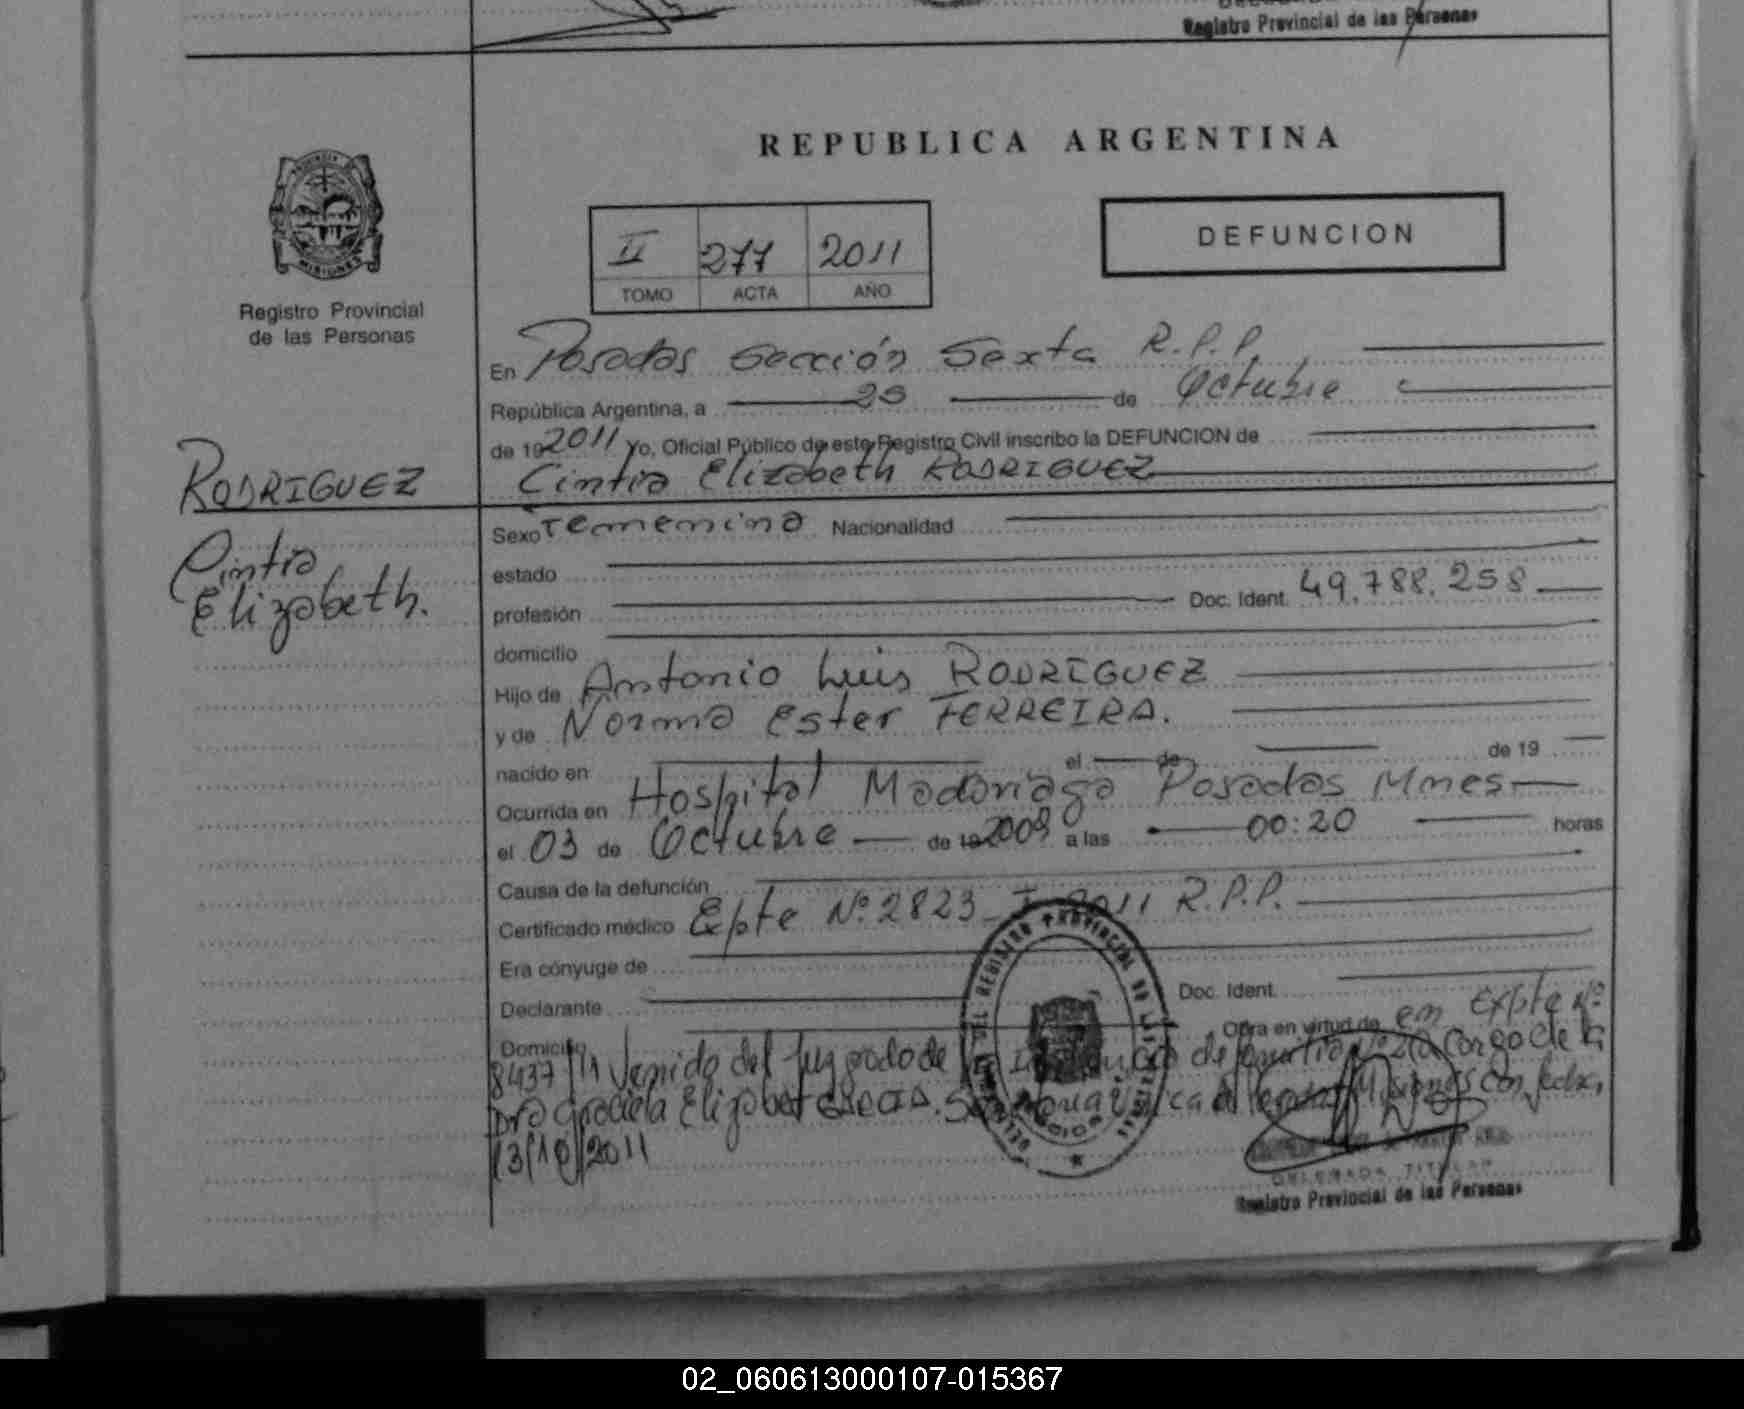 Registro Provincial de las Personas
REPUBLICA ARGENTINA
MISIONES
Registro Provincial
de las Personas
II 277 2011
TOMO ACTA AÑO
DEFUNCION
En Posadas Sección Sexta R.P.P.
República Argentina, a 25 de Octubre
de 19 2011 Yo, Oficial Público de este Registro Civil inscribo la DEFUNCION de
RODRIGUEZ
Cintia Elizabeth RODRIGUEZ
Cintia
Elizabeth.
Sexo Femenino Nacionalidad
estado
profesión Doc. Ident. 49.788.258
domicilio
Hijo de Antonio Luis RODRIGUEZ
y de Norma Ester FERREIRA.
nacido en el de de 19
Ocurrida en Hospital Madariaga Posadas Mnes
el 03 de Octubre de 19 2009 a las 00:20 horas
Causa de la defunción
Certificado médico Epte Nº 2823 2011 R.P.P.
Era cónyuge de
Declarante Doc. Ident.
Domicilio Obra en virtud de en Expte Nº
8437/11 Venido del Juzgado de de Familia Nº 2 a Cargo de la
Dra Graciela Elizabet GARCIA. Misiones con fecha,
13/10/2011
DELEGADA TITULAR
Registro Provincial de las Personas
02_060613000107-015367